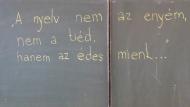 „A nyelv nem az enyém,
nem a tiéd,
hanem az édes mienk...”